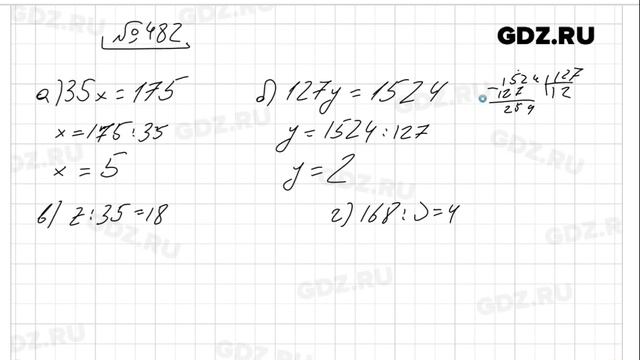 № 482
GDZ.RU
а) 35x = 175
x = 175 : 35
x = 5
б) 127y = 1524
y = 1524 : 127
y = 2
1524 | 127
- 127 | 12
254
в) z : 35 = 18
г) 168 : υ = 4
GDZ.RU
GDZ.RU
GDZ.RU
GDZ.RU
GDZ.RU
GDZ.RU
GDZ.RU
GDZ.RU
GDZ.RU